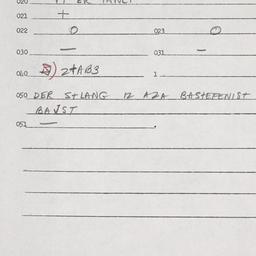 020
021 +
022 0 023 0
030 — 031 —
040 2+AB3 1
050 DER StLANG 12 AZA BAStEFENIST
BAJST
051 —